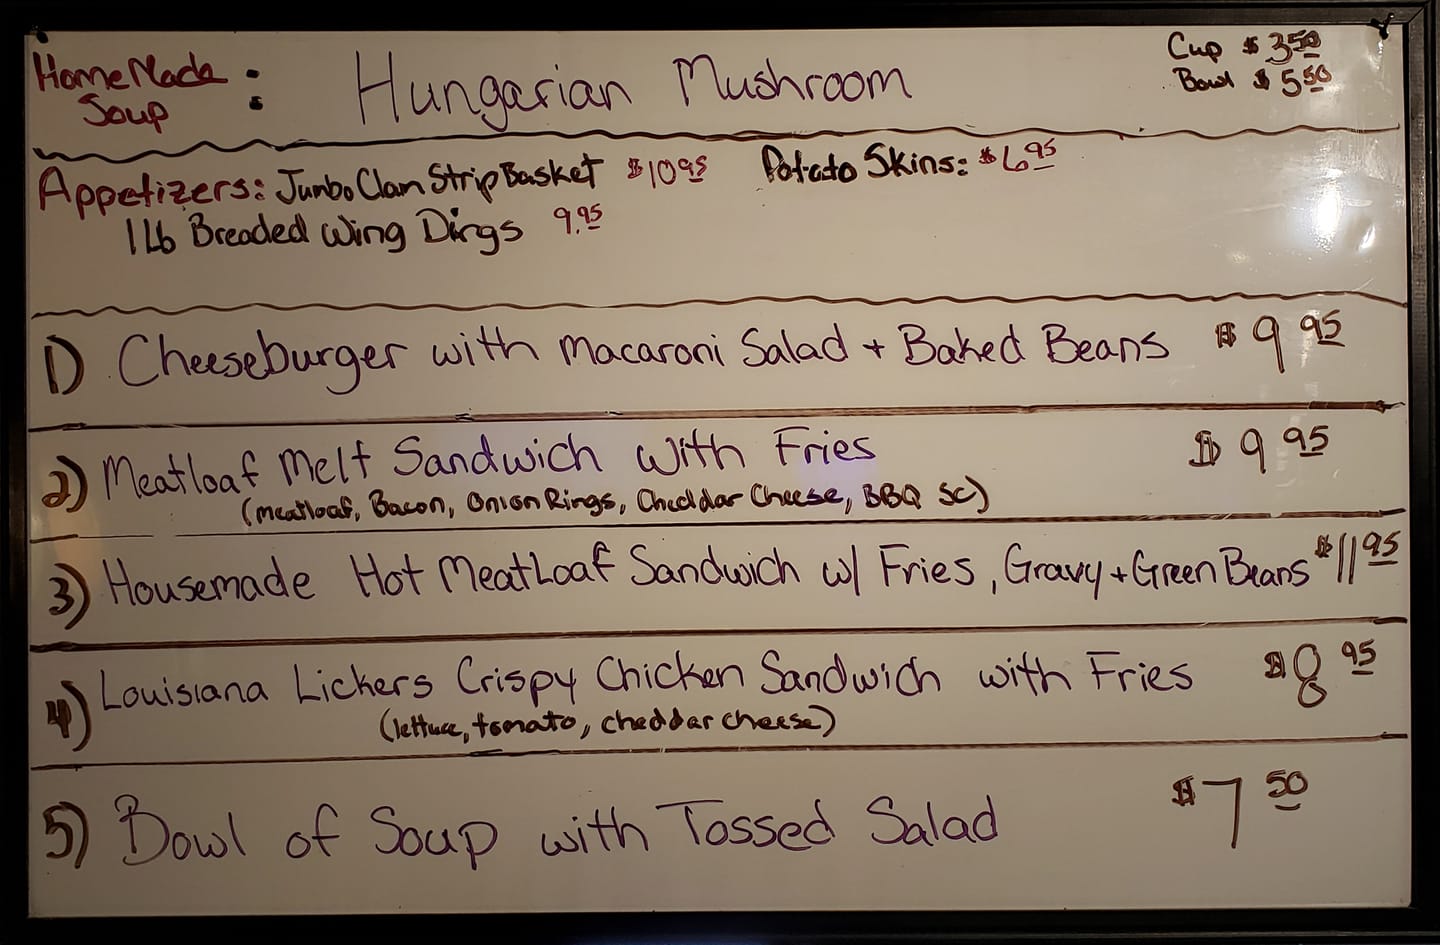 HomeMade Soup : Hungarian Mushroom
Cup $3.50
Bowl $5.50
Appetizers: Jumbo Clam Strip Basket $10.95 Potato Skins: $6.95
1 Lb Breaded Wing Dings 9.95
1) Cheeseburger with Macaroni Salad + Baked Beans $9.95
2) Meatloaf Melt Sandwich with Fries $9.95
(meatloaf, Bacon, Onion Rings, Cheddar Cheese, BBQ SC)
3) Housemade Hot MeatLoaf Sandwich w/ Fries, Gravy + Green Beans $11.95
4) Louisiana Lickers Crispy Chicken Sandwich with Fries $8.95
(lettuce, tomato, cheddar cheese)
5) Bowl of Soup with Tossed Salad $7.50